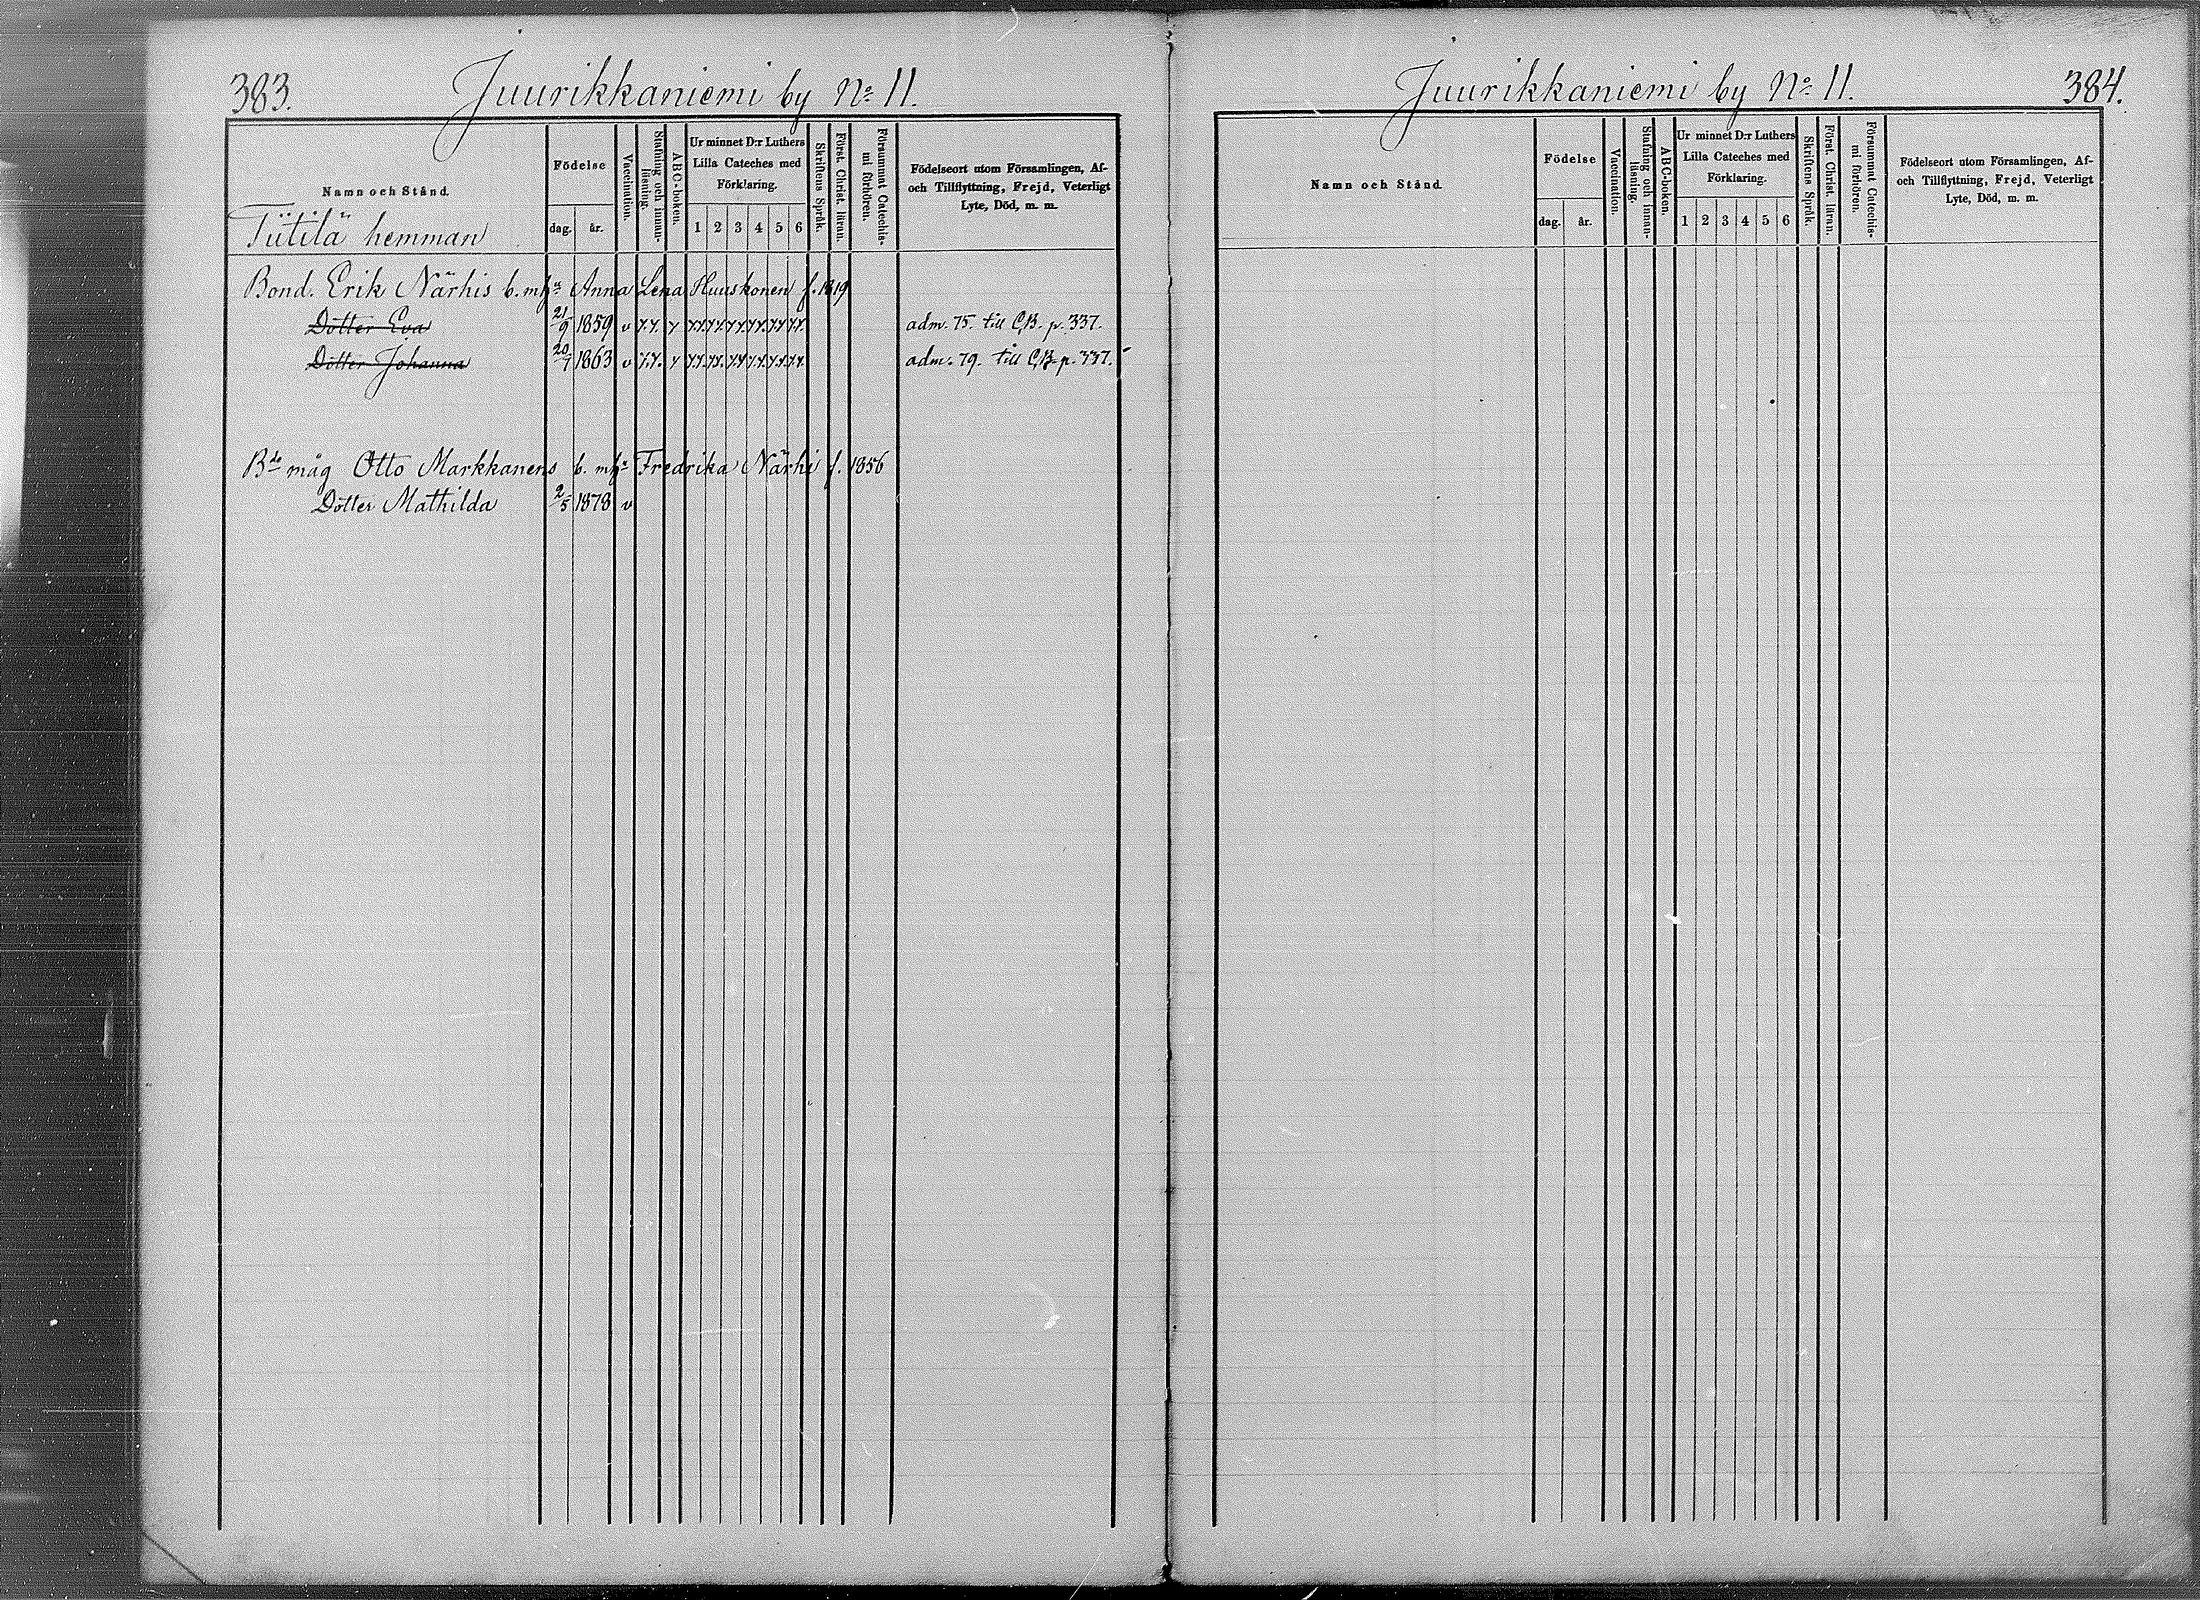 383. Juurikkaniemi by No 11.
Namn och Stånd.
Födelse
dag. år.
Vaccination.
Stafning och innan-
läsning.
ABC-boken.
Ur minnet D:r Luthers
Lilla Cateches med
Förklaring.
1 2 3 4 5 6
Skriftens Språk.
Först. Christ. läran.
Försummat Catechis-
mi förhören.
Födelseort utom Församlingen, Af-
och Tillflyttning, Frejd, Veterligt
Lyte, Död, m. m.
Tiitilä hemman
Bond. Erik Närhis b. m hn Anna Lena Huuskonen f. 1819
Dotter Eva 21/9 1859 v adm. 75. till C.B. p. 337.
Dotter Johanna 20/7 1863 v adm. 79. till C.B. p. 337.
Bde måg Otto Markkanens b. m h. Fredrika Närhi f. 1856
Dotter Mathilda 2/5 1878 v
Juurikkaniemi by No 11. 384.
Namn och Stånd.
Födelse
dag. år.
Vaccination.
Stafning och innan-
läsning.
ABC-boken.
Ur minnet D:r Luthers
Lilla Cateches med
Förklaring.
1 2 3 4 5 6
Skriftens Språk.
Först. Christ. läran.
Försummat Catechis-
mi förhören.
Födelseort utom Församlingen, Af-
och Tillflyttning, Frejd, Veterligt
Lyte, Död, m. m.